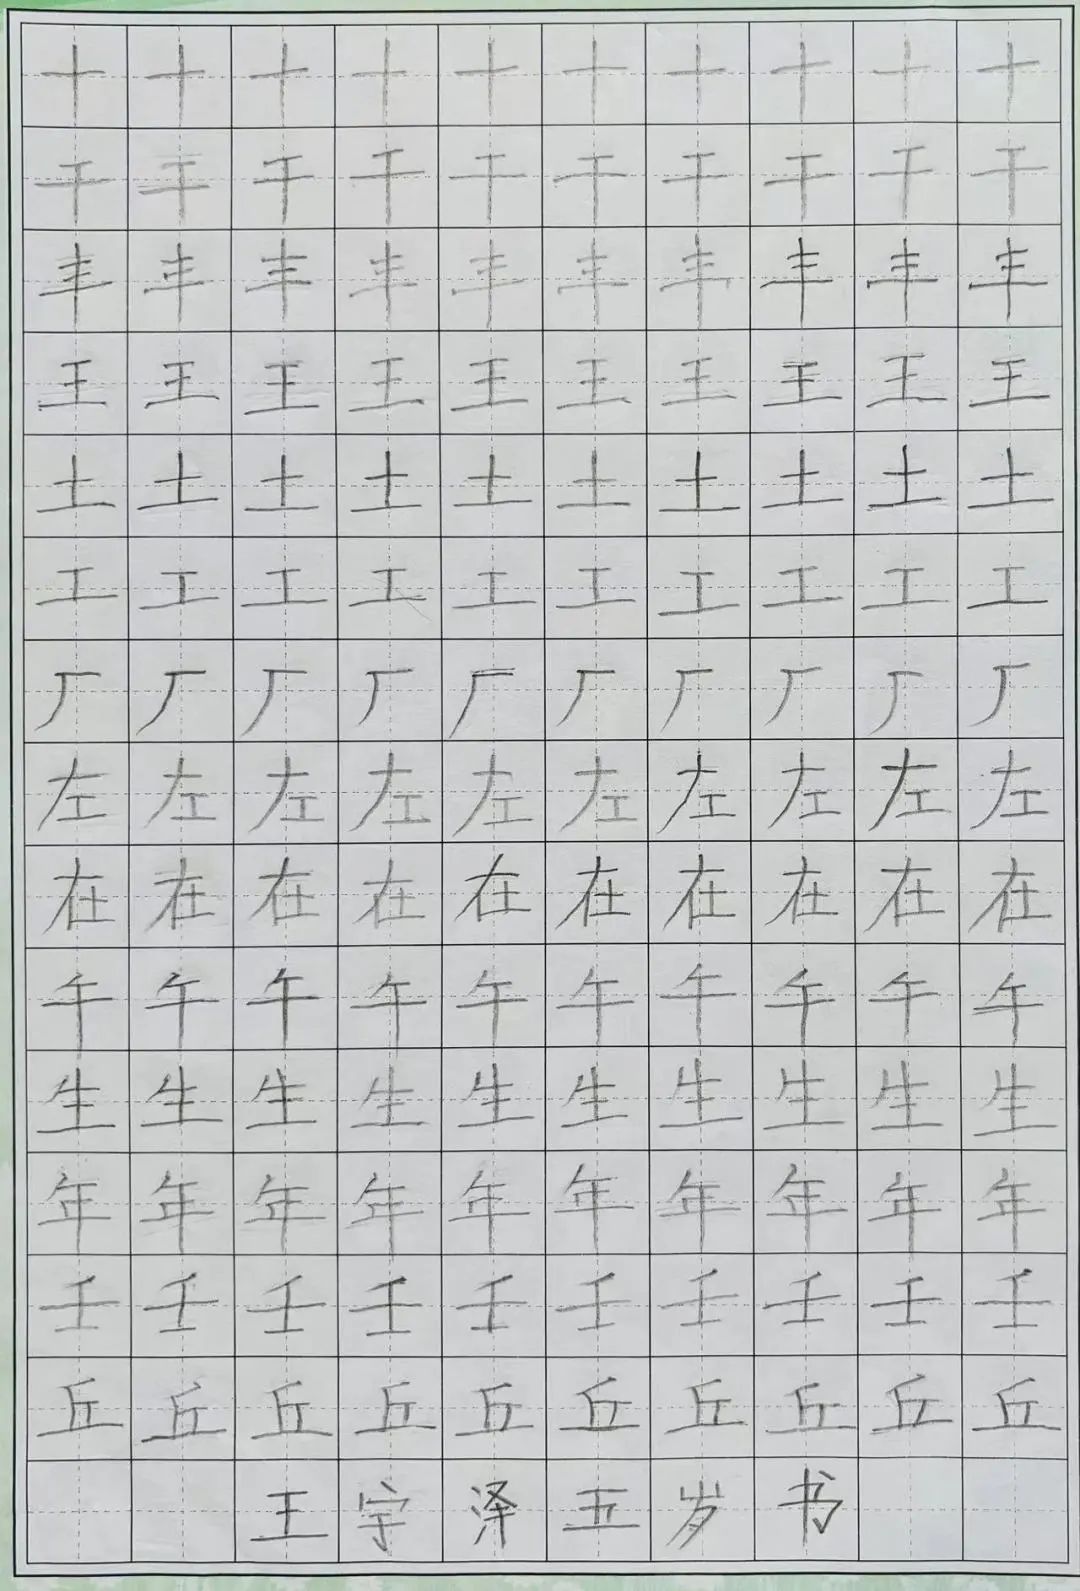 十十十十十十十十十十
干干干干干干干干干干
丰丰丰丰丰丰丰丰丰丰
王王王王王王王王王王
土土土土土土土土土土
工工工工工工工工工工
厂厂厂厂厂厂厂厂厂厂
左左左左左左左左左左
在在在在在在在在在在
午午午午午午午午午午
生生生生生生生生生生
年年年年年年年年年年
壬壬壬壬壬壬壬壬壬壬
丘丘丘丘丘丘丘丘丘丘
王宇泽五岁书